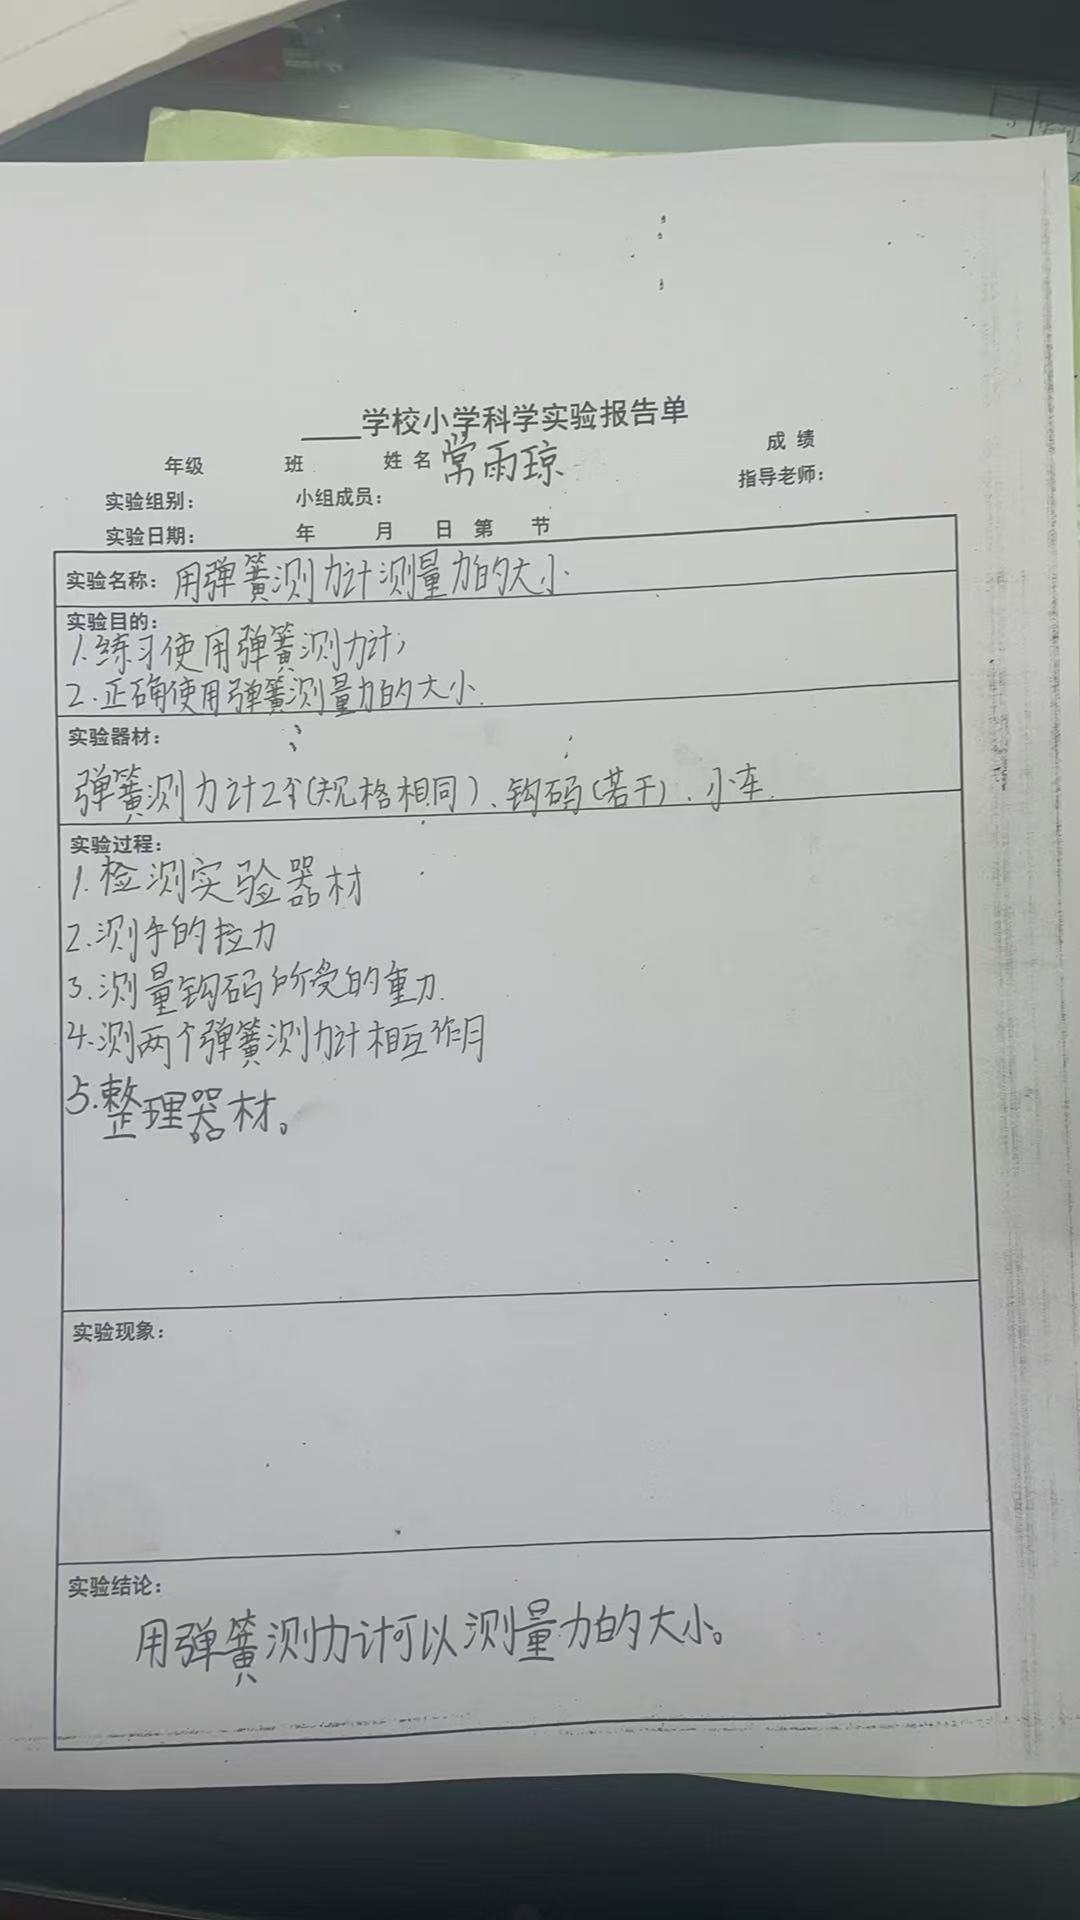 ____学校小学科学实验报告单
年级 班 姓名 常雨琼 成绩
实验组别： 小组成员： 指导老师：
实验日期： 年 月 日 第 节
实验名称：用弹簧测力计测量力的大小.
实验目的：
1.练习使用弹簧测力计；
2.正确使用弹簧测量力的大小.
实验器材：
弹簧测力计2个(规格相同)、钩码(若干)、小车.
实验过程：
1.检测实验器材
2.测手的拉力
3.测量钩码所受的重力.
4.测两个弹簧测力计相互作用
5.整理器材。
实验现象：
实验结论：
用弹簧测力计可以测量力的大小。